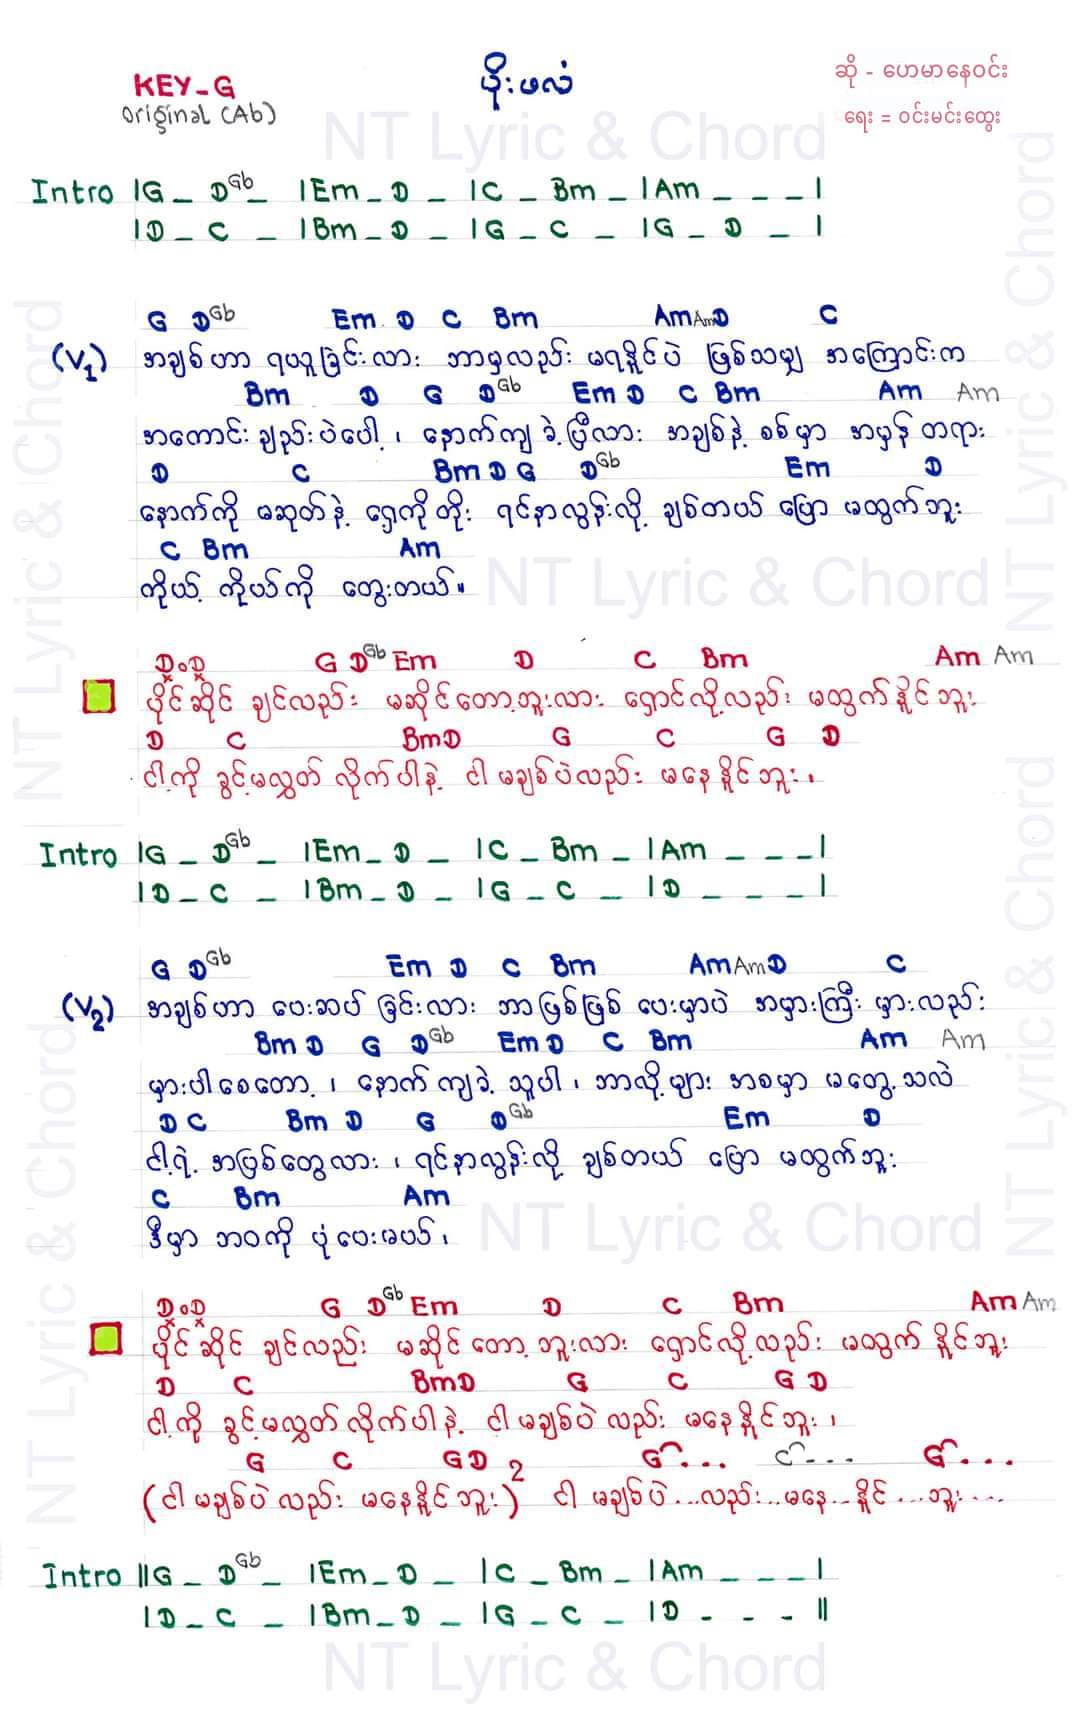 KEY-G
ပိုးဖလံ
ဆို - ဟေမာနေဝင်း
original (Ab)
ရေး = ဝင်းမင်းထွေး
NT Lyric & Chord
Intro |G _ D Gb _ |Em _ D _ |C _ Bm _ |Am _ _ _ |
|D _ C _ |Bm _ D _ |G _ C _ |G _ D _ |
G D Gb Em D C Bm Am Am D C
(V1) အချစ်ဟာ ရယူခြင်းလား ဘာမှလည်း မရနိုင်ပဲ ဖြစ်သမျှ အကြောင်းက
Bm D G D Gb Em D C Bm Am Am
အကောင်းချည်းပဲပေါ့ ၊ နောက်ကျခဲ့ပြီလား အချစ်နဲ့ စစ်မှာ အမှန်တရား
D C Bm D G D Gb Em D
နောက်ကို မဆုတ်နဲ့ ရှေ့ကိုတိုး ရင်နာလွန်းလို့ ချစ်တယ် ပြော မထွက်ဘူး
C Bm Am
ကိုယ့် ကိုယ်ကို တွေးတယ်။
NT Lyric & Chord
D D G D Gb Em D C Bm Am Am
ပိုင်ဆိုင်ချင်လည်း မဆိုင်တော့ဘူးလား ရှောင်လို့လည်း မထွက်နိုင်ဘူး
D C Bm D G C G D
ငါ့ကို ခွင့်မလွှတ်လိုက်ပါနဲ့ ငါ မချစ်ပဲလည်း မနေနိုင်ဘူး ၊
Intro |G _ D Gb _ |Em _ D _ |C _ Bm _ |Am _ _ _ |
|D _ C _ |Bm _ D _ |G _ C _ |D _ _ _ |
G D Gb Em D C Bm Am Am D C
(V2) အချစ်ဟာ ပေးဆပ်ခြင်းလား ဘာဖြစ်ဖြစ် ပေးမှာပဲ အမှားကြီး မှားလည်း
Bm D G D Gb Em D C Bm Am Am
မှားပါစေတော့ ၊ နောက်ကျခဲ့သူပါ ၊ ဘာလို့များ အစမှာ မတွေ့သလဲ
D C Bm D G D Gb Em D
ငါ့ရဲ့ အဖြစ်တွေလား ၊ ရင်နာလွန်းလို့ ချစ်တယ် ပြော မထွက်ဘူး
C Bm Am
ဒီမှာ ဘဝကို ပုံပေးမယ် ၊
NT Lyric & Chord
D D G D Gb Em D C Bm Am Am
ပိုင်ဆိုင်ချင်လည်း မဆိုင်တော့ဘူးလား ရှောင်လို့လည်း မထွက်နိုင်ဘူး
D C Bm D G C G D
ငါ့ကို ခွင့်မလွှတ်လိုက်ပါနဲ့ ငါမချစ်ပဲလည်း မနေနိုင်ဘူး ၊
G C G D G ... C ... G ...
(ငါမချစ်ပဲလည်း မနေနိုင်ဘူး)2 ငါ မချစ်ပဲ...လည်း...မနေ...နိုင်...ဘူး...
Intro ||G _ D Gb _ |Em _ D _ |C _ Bm _ |Am _ _ _ |
|D _ C _ |Bm _ D _ |G _ C _ |D - - - ||
NT Lyric & Chord
NT Lyric & Chord
NT Lyric & Chord
NT Lyric & Chord
NT Lyric & Chord